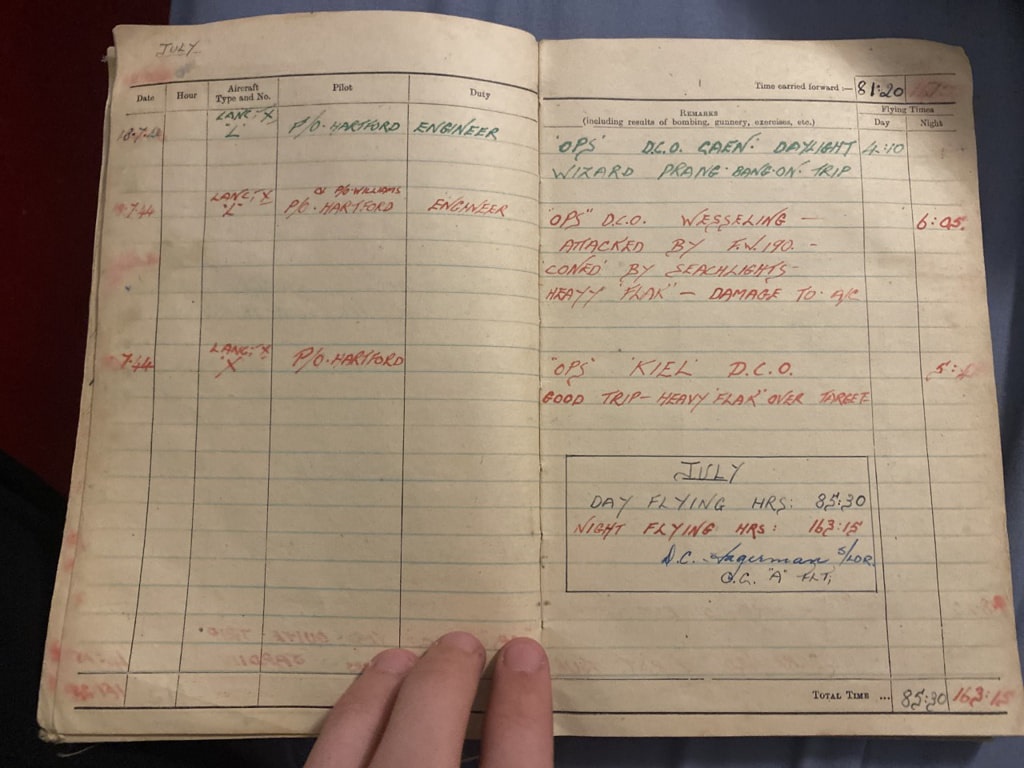 JULY
Date Hour Aircraft Type and No. Pilot Duty
Time carried forward :— 81:20
REMARKS (including results of bombing, gunnery, exercises, etc.)
Flying Times
Day Night
18-7-44 LANC; X "L" P/O. HARTFORD ENGINEER 'OPS' D.C.O. CAEN. DAYLIGHT 4:10
WIZARD PRANG. BANG-ON. TRIP
P/O WILLIAMS
7-44 LANC; X "L" P/O. HARTFORD ENGINEER "OPS" D.C.O. WESSELING — 6:05
ATTACKED BY F.W.190. -
CONED' BY SEACHLIGHTS-
HEAVY 'FLAK' — DAMAGE TO. A/C
7-44 LANC; X X P/O. HARTFORD "OPS" 'KIEL' D.C.O.
GOOD TRIP - HEAVY 'FLAK' OVER TARGET
JULY
DAY FLYING HRS: 85:30
NIGHT FLYING HRS: 163:15
D.C. S/LDR.
O.C. "A" FLT,
TOTAL TIME ... 85:30 163:15